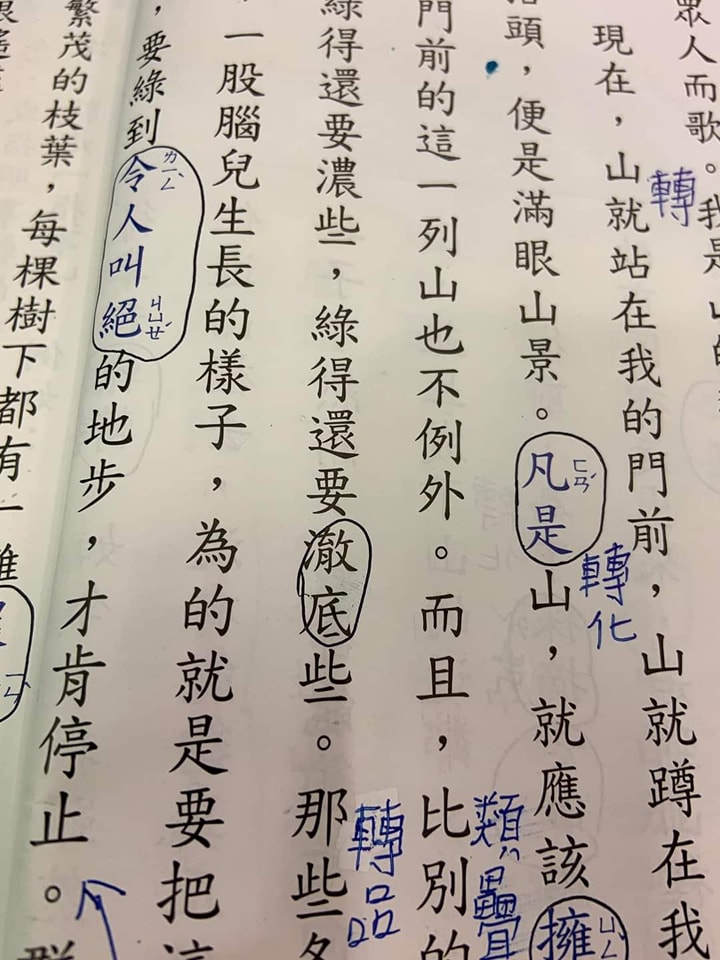 眾人而歌。我是山的
轉
現在，山就站在我的門前，山就蹲在我
轉化
抬頭，便是滿眼山景。凡是山，就應該擁
ㄈㄢˊ
ㄩㄥ
類疊
門前的這一列山也不例外。而且，比別的
轉品
綠得還要濃些，綠得還要澈底些。那些
一股腦兒生長的樣子，為的就是要把這
，要綠到令人叫絕的地步，才肯停止。群
ㄌㄧㄥˋ
ㄐㄩㄝˊ
繁茂的枝葉，每棵樹下都有一